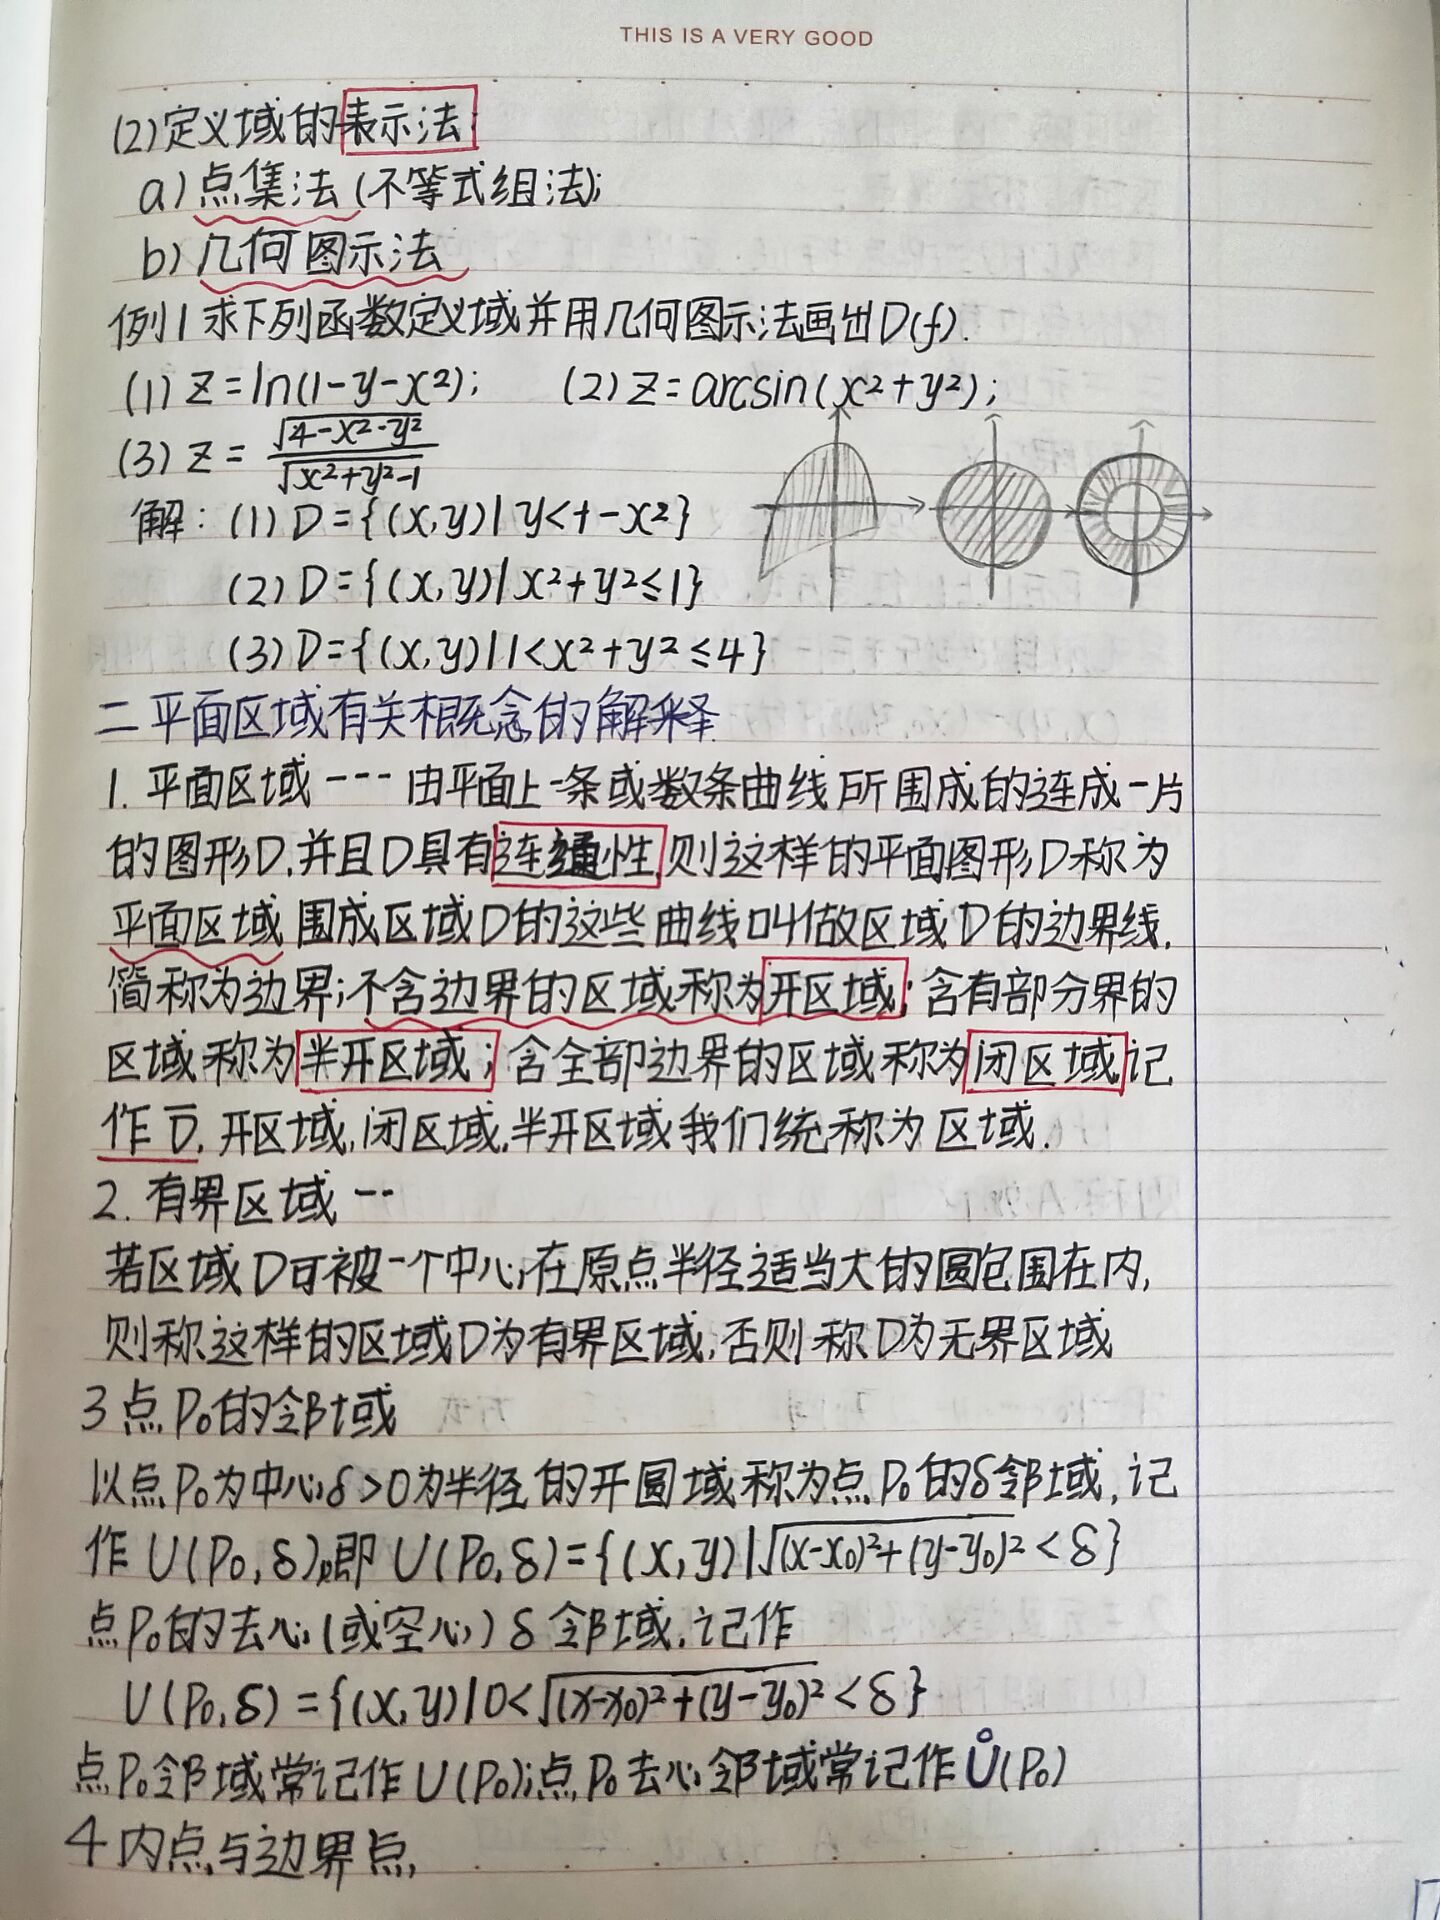 THIS IS A VERY GOOD
(2)定义域的表示法:
a)点集法(不等式组法);
b)几何图示法
例1求下列函数定义域并用几何图示法画出D(f).
(1) z=ln(1-y-x²); (2) z=arcsin(x²+y²);
(3) z=√(4-x²-y²)/√(x²+y²-1)
解: (1) D={(x,y)|y<1-x²}
(2) D={(x,y)|x²+y²≤1}
(3) D={(x,y)|1<x²+y²≤4}
二平面区域有关概念的解释
1. 平面区域---由平面上一条或数条曲线所围成的连成一片
的图形D,并且D具有连通性,则这样的平面图形D称为
平面区域 围成区域D的这些曲线叫做区域D的边界线,
简称为边界;不含边界的区域称为开区域;含有部分界的
区域称为半开区域;含全部边界的区域称为闭区域,记
作D̅. 开区域,闭区域,半开区域我们统称为区域.
2. 有界区域--
若区域D可被一个中心在原点半径适当大的圆包围在内,
则称这样的区域D为有界区域,否则称D为无界区域
3点P₀的邻域
以点P₀为中心,δ>0为半径的开圆域称为点P₀的δ邻域,记
作U(P₀,δ),即U(P₀,δ)={(x,y)|√(x-x₀)²+(y-y₀)²<δ}
点P₀的去心(或空心)δ邻域,记作
U(P₀,δ)={(x,y)|0<√(x-x₀)²+(y-y₀)²<δ}
点P₀邻域常记作U(P₀);点P₀去心邻域常记作Ů(P₀)
4内点与边界点,